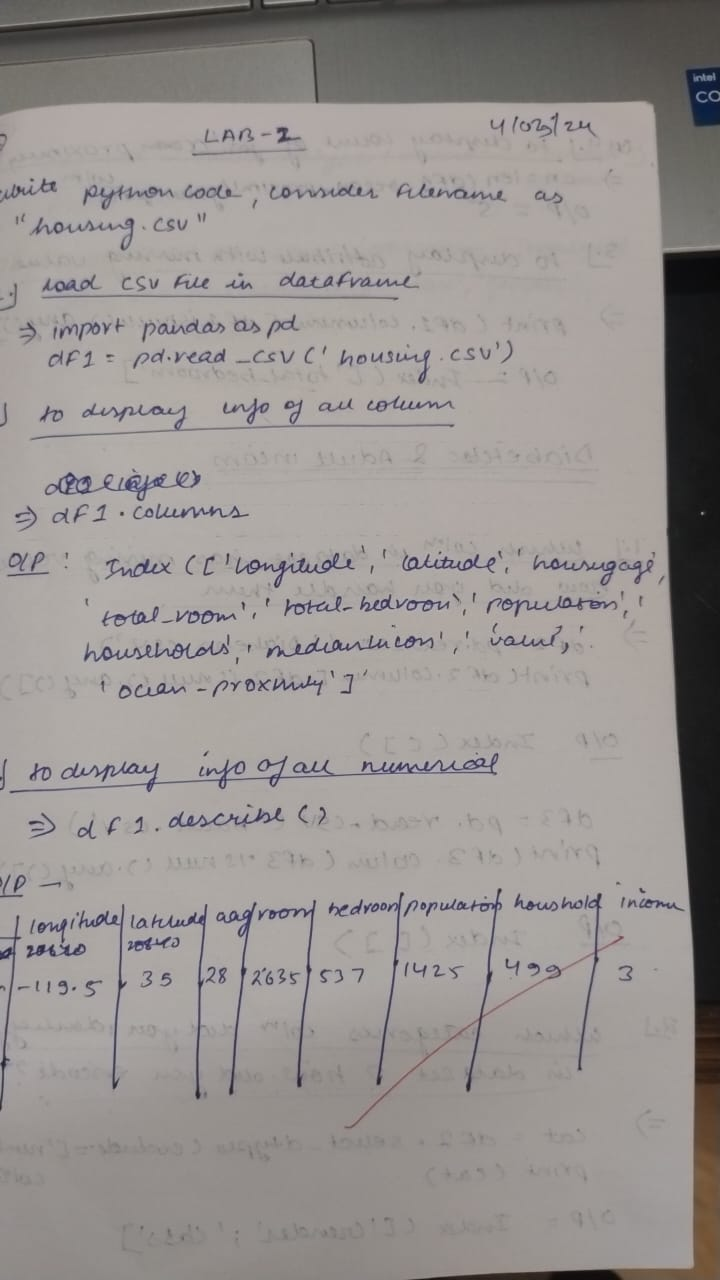 intel
CO
LAB-2
4/03/24
write python code, consider filename as
"housing.csv"
load csv file in dataframe
⇒ import pandas as pd
df1 = pd.read_csv('housing.csv')
to display info of all column
⇒ df1.columns
O/P : Index(['longitude', 'latitude', 'housingage',
'total_room', 'total-bedroom', 'population', '
households', 'medianIncom', 'value', '
'ocean-proximity']
to display info of all numerical
⇒ df1.describe()
O/P →
longitude latitude aag room bedroom population houshold income
20640 20640
-119.5 35 28 2635 537 1425 499 3